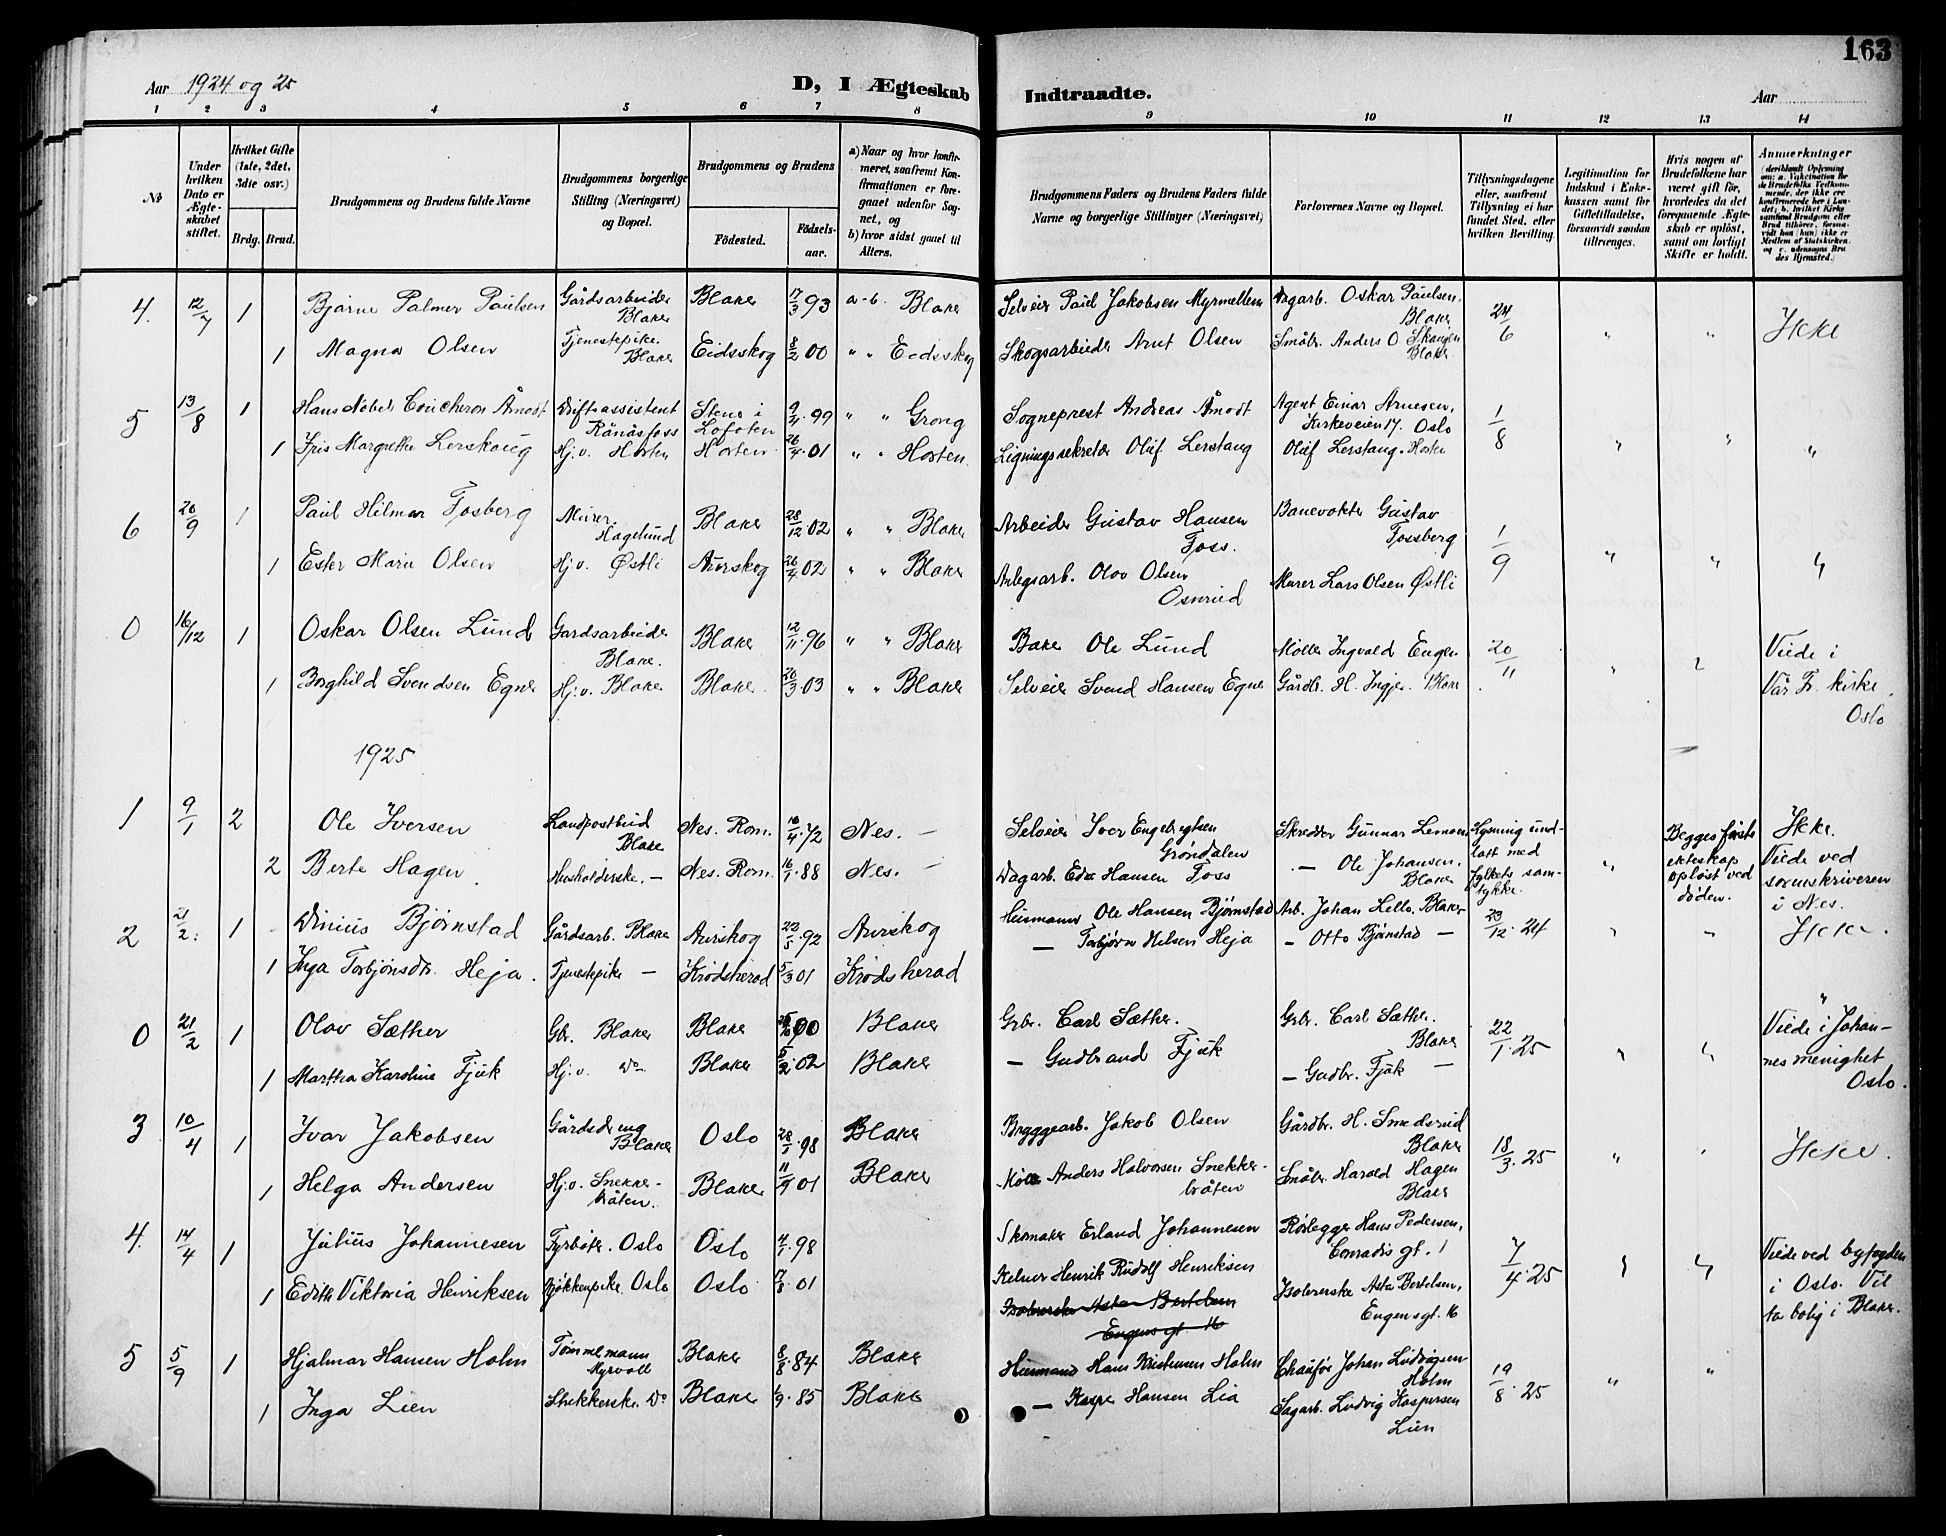 163
Aar 1924 og 25 D, I Ægteskab Indtraadte. Aar
1 2 3 4 5 6 7 8 9 10 11 12 13 14
No
Under hvilken Dato er Ægte- skabet stiftet.
Hvilket Gifte (1ste, 2det, 3die osv.)
Brdg. Brud.
Brudgommens og Brudens fulde Navne
Brudgommens borgerlige Stilling (Næringsvei) og Bopæl.
Brudgommens og Brudens
Fødested. Fødsels- aar.
a) Naar og hvor konfir- meret, saafremt Kon- firmationen er fore- gaaet udenfor Sog- net, og
b) hvor sidst gaaet til Alters.
Brudgommens Faders og Brudens Faders fulde Navne og borgerlige Stillinger (Næringsvei)
Forlovernes Navne og Bopæl.
Tillysningsdagene eller, saafremt Tillysning ei har fundet Sted, efter hvilken Bevilling
Legitimation for Indskud i Enke- kassen samt for Giftetilladelse, forsaavidt saadan tiltrænges.
Hvis nogen af Brudefolkene har været gift før, hvorledes da det foregaaende Ægte- skab er opløst, samt om lovligt Skifte er holdt.
Anmerkninger
4. 12/7 1 Bjarne Palmer Paulsen Gårdsarbeider Blaker Blaker 17/3 93 a-b. Blaker Selveier Paul Jakobsen Myrmellem Dagarb. Oskar Paulsen, Blaker 24/6 " " Ikke
1 Magna Olsen Tjenestepike Blaker Eidsskog 8/2 00 " " Eidsskog Skogsarbeider Arnt Olsen Småbr. Anders O. Skaugen Blaker
5 13/8 1 Hans Nobel Coucheron Åmodt Driftsassistent Rånåsfoss Stene i Lofoten 9/4 99 " " Grong Sogneprest Andreas Åmodt Agent Einar Arnesen, Kirkeveien 17. Oslo 1/8 " " "
1 Iris Margrethe Lerskaug Hj.v. Horten Horten 26/4 01 " " Horten Ligningssekretær Oluf Lerskaug Oluf Lerskaug. Horten
6 20/9 1 Paul Hilmar Fosberg Murer. Hagelund Blaker 28/12 02 " " Blaker Arbeider Gustav Hansen Foss. Banevokter Gustav Fossberg 1/9 " " "
1 Ester Marie Olsen Hj.v. Østli Aurskog 26/4 02 " " Blaker Anlegsarb. Olov Olsen Osnrud Murer Lars Olsen Østli
0 16/12 1 Oskar Olsen Lund Gardsarbeider Blaker. Blaker 12/11 96 " " Blaker Baker Ole Lund Møller Ingvald Engen 20/11 " " Viede i Vår Fr. kirke, Oslo
1 Borghild Svendsen Egner Hj.v. Blaker Blaker 20/3 03 " " Blaker Selveier Svend Hansen Egner Gårdbr. H. Ingjer. Blaker
1925
1 9/1 2 Ole Iversen Landpostbud Blaker Nes. Rom. 10/4 72 Nes. – Selveier Iver Engebrigtsen Grøndalen Skredder Gunnar Lemoen Lysning und- latt med fylkets sam- tykke. " Begges første ekteskap opløst ved døden. Ikke. Viede ved sorenskriveren i Nes.
2 Berte Hagen Husholderske. – Nes. Rom. 16/1 88 Nes. – Dagarb. Edv. Hansen Foss – Ole Johansen. Blaker
2 21/2 1 Dinius Bjørnstad Gårdsarb. Blaker Aurskog 22/8 92 Aurskog Husmann Ole Hansen Bjørnstad Arb. Johan Lello. Blaker 23/12 24 " " Ikke.
1 Inga Torbjønsdtr. Heja. Tjenestepike – Krødsherad 5/3 01 Krødsherad – Torbjørn Nilsen Heja – Otto Bjørnstad –
0 21/2 1 Olav Sæther Gbr. Blaker Blaker 00 Blaker Grbr. Carl Sæther. Grbr. Carl Sæther. Blaker 22/1 25 " " " Viede i Johan- nes menighet Oslo.
1 Martha Karoline Fjuk Hj.v. Do Blaker 5/2 02 Blaker – Gudbrand Fjuk – Gudbr. Fjuk –
3 10/4 1 Ivar Jakobsen Gårdsdreng Blaker Oslo 28/1 98 Blaker Bryggearb. Jakob Olsen Gårdbr. H. Smedsrud Blaker 18/3 25 " " Ikke.
1 Helga Andersen Hj.v. Snekker- bråten. Blaker 11/9 01 Blaker Møller Anders Halvorsen Snekker- bråten Småbr. Harald Hagen Blaker
4. 14/4 1 Julius Johannesen Fyrbøter. Oslo Oslo 4/1 98 Skomaker Erland Johannesen Rørlegger Hans Pedersen, Conradis gt. 1 7/4 25 " " Viede ved byfogden i Oslo. Vil ta bolig i Blaker.
1 Edith Viktoria Henriksen Kjøkkenpike Oslo Oslo 17/8 01 Kelner Henrik Rudolf Henriksen Isolererske Asta Bertelsen, Engens gt. 16
Isolererske Asta Bertelsen Engens gt 16
5 5/9 1 Hjalmar Hansen Holm Tømmermann Myrvoll Blaker 8/8 84 Blaker Husmand Hans Kristensen Holm Chauffør Johan Ludvigsen Holm 19/8 25 " "
1 Inga Lien Strikkerske. Do Blaker 1/9 85 Blaker – Kasper Hansen Lia Sagarb. Ludvig Kaspersen Lien